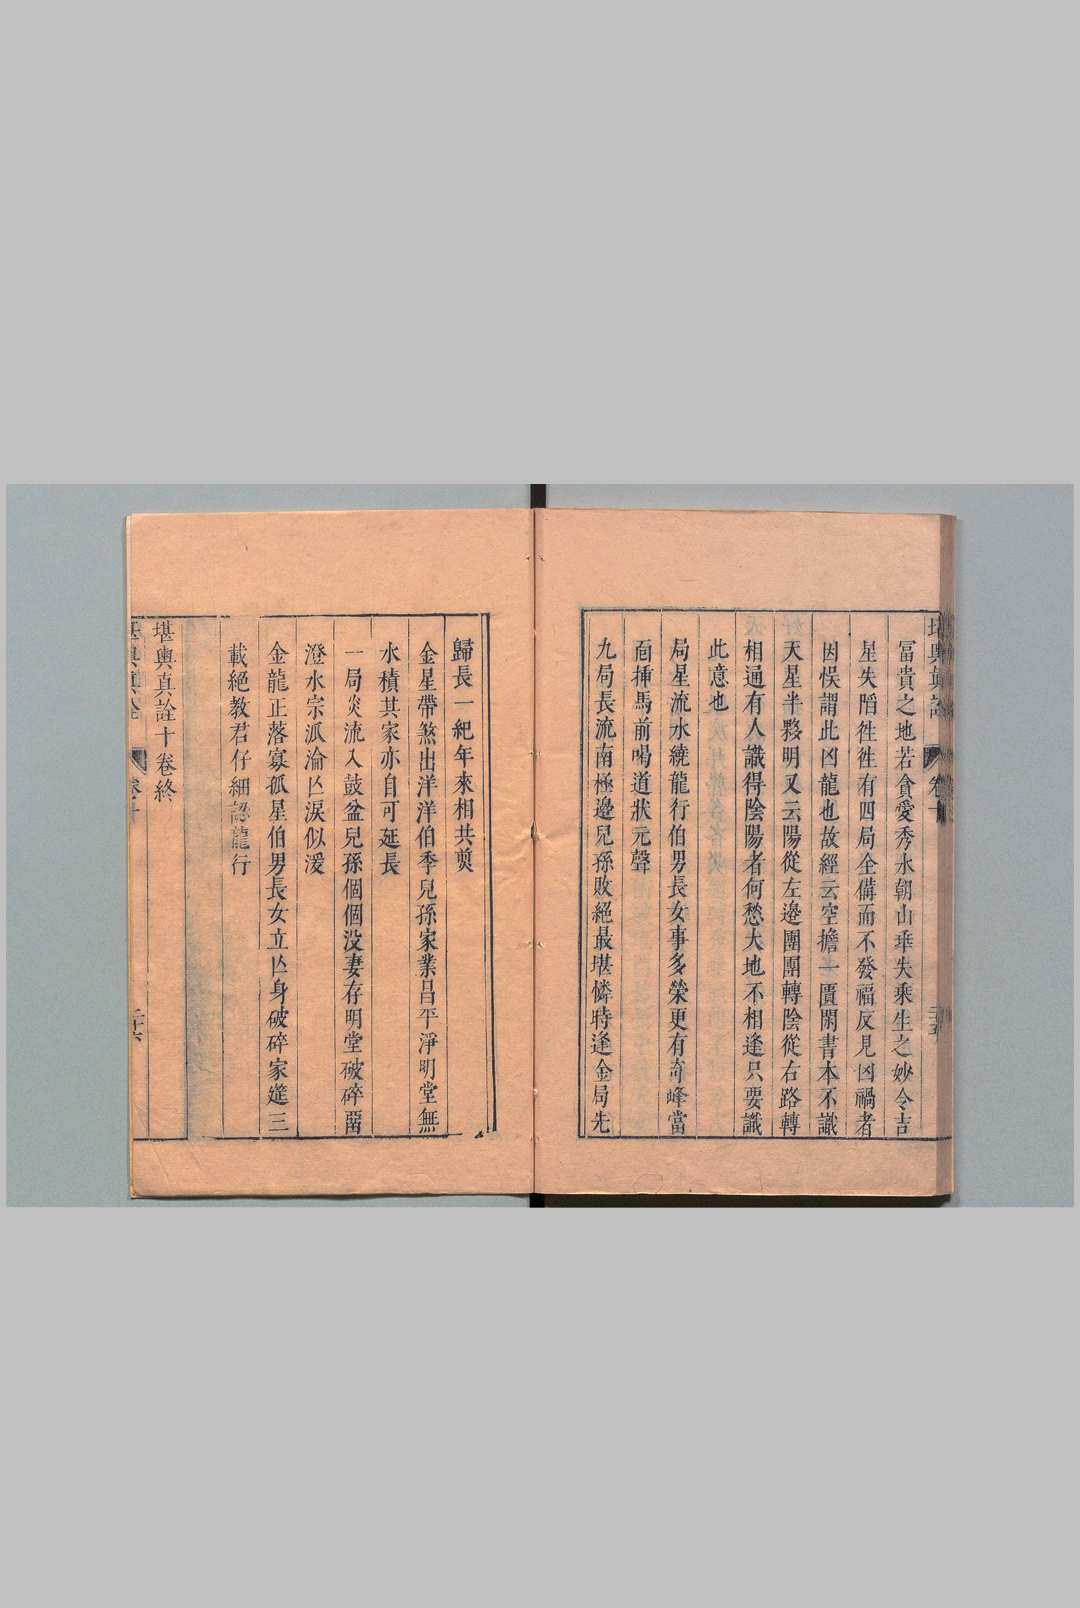 冨貴之地若貪愛秀水朝山乖失乘生之妙令吉
星失䧟徃徃有四局全備而不發福反見凶禍者
因悞謂此凶龍也故經云空擔一匱閑書本不識
天星半夥明又云陽從左邊團團轉陰從右路轉
相通有人識得陰陽者何愁大地不相逢只要識
此意也
局星流水繞龍行伯男長女事多榮更有奇峰當
面揷馬前喝道狀元聲
九局長流南極邊兒孫敗絕最堪憐時逢金局先
歸長一紀年來相共奠
金星帶煞出洋洋伯季兒孫家業昌平淨明堂無
水積其家亦自可延長
一局炎流入鼓盆兒孫個個没妻存明堂破碎畱
澄水宗泒淪亾淚似湲
金龍正落寡孤星伯男長女立亾身破碎家筵三
載絕教君仔細認龍行
堪輿真詮十卷終
堪輿真詮 卷十